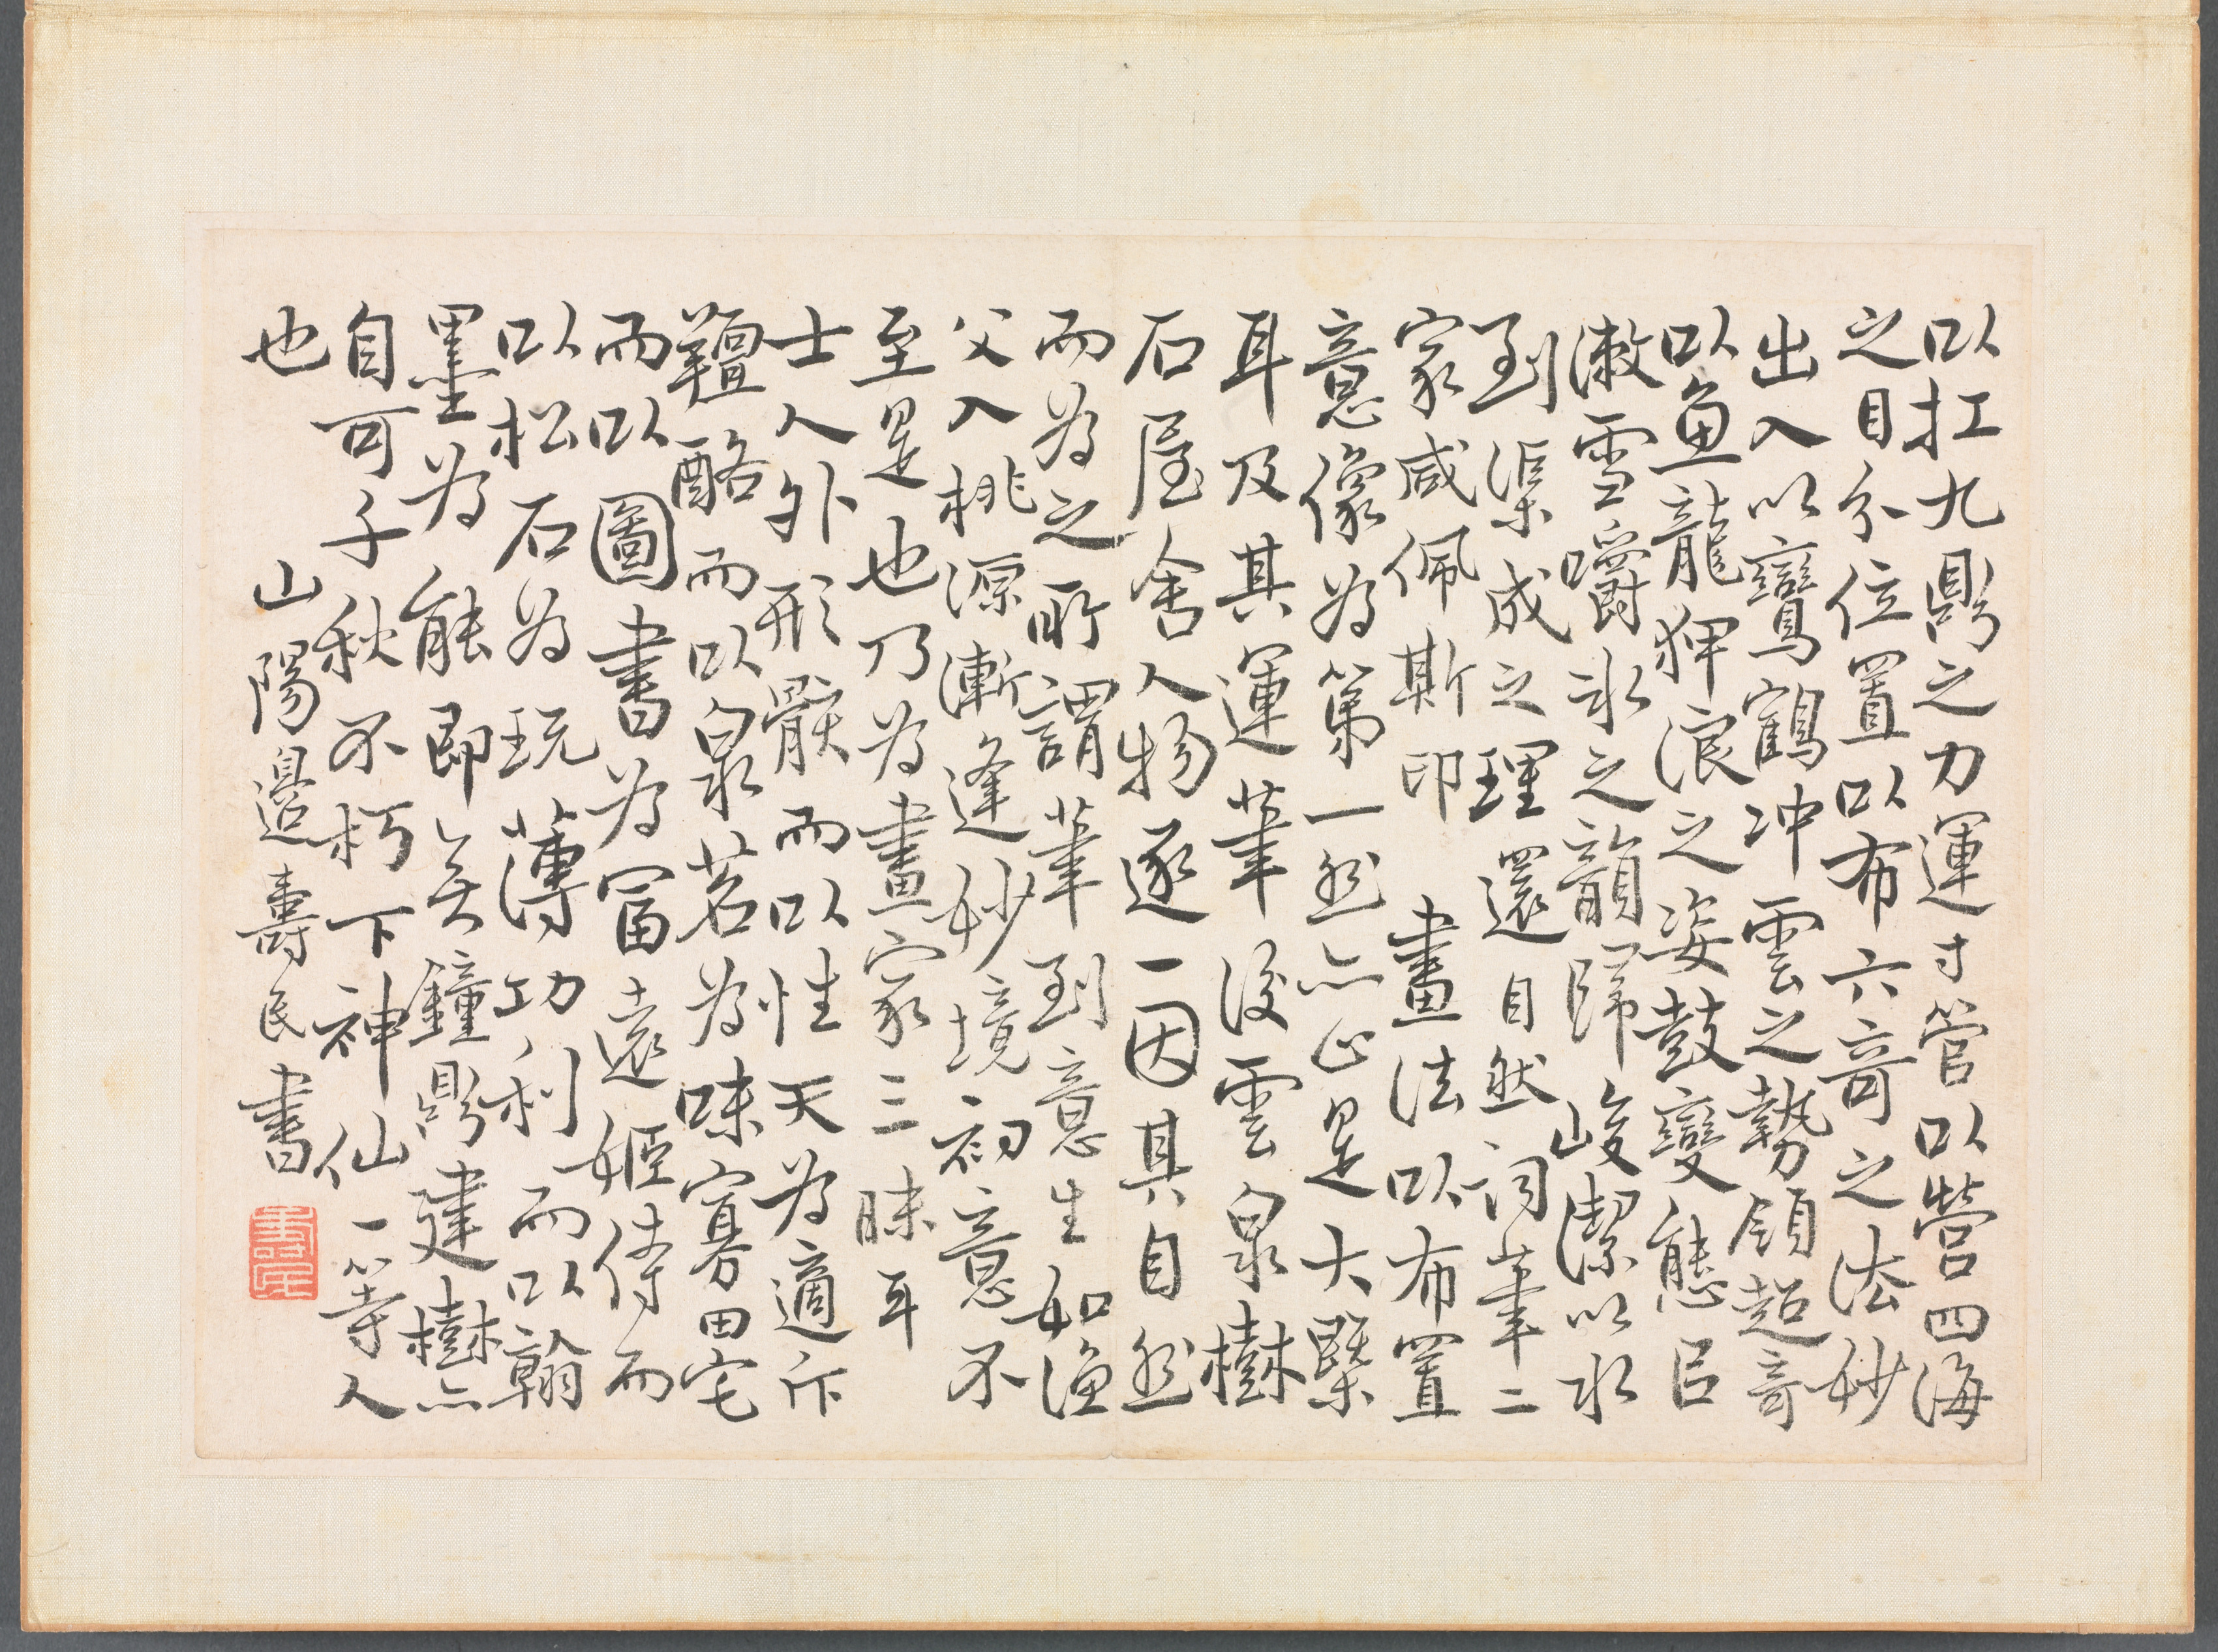 以扛九鼎之力運寸管以營四海
之目分位置以布六奇之法妙
出入以鸞鶴冲雲之勢領超奇
以魚龍狎浪之姿鼓變態臣
漱雪嚼氷之韻歸峻潔以水
到渠成之理還自然詞華二
家咸佩斯印 畫法以布置
意像為第一然亦正是大槩
耳及其運筆後雲泉樹
石屋舍人物逐一因其自然
而為之所謂筆到意生如漁
父入桃源漸逢妙境初意不
至是也乃為畫家三昧耳
士人外形骸而以性天為適斥
羶酪而以泉茗為味寡田宅
而以圖書為富遠姬侍而
以松石為玩薄功利而以翰
墨為能即無鐘鼎建樹亦
自可千秋不朽下神仙一等人
也
山陽邊壽民書
壽民